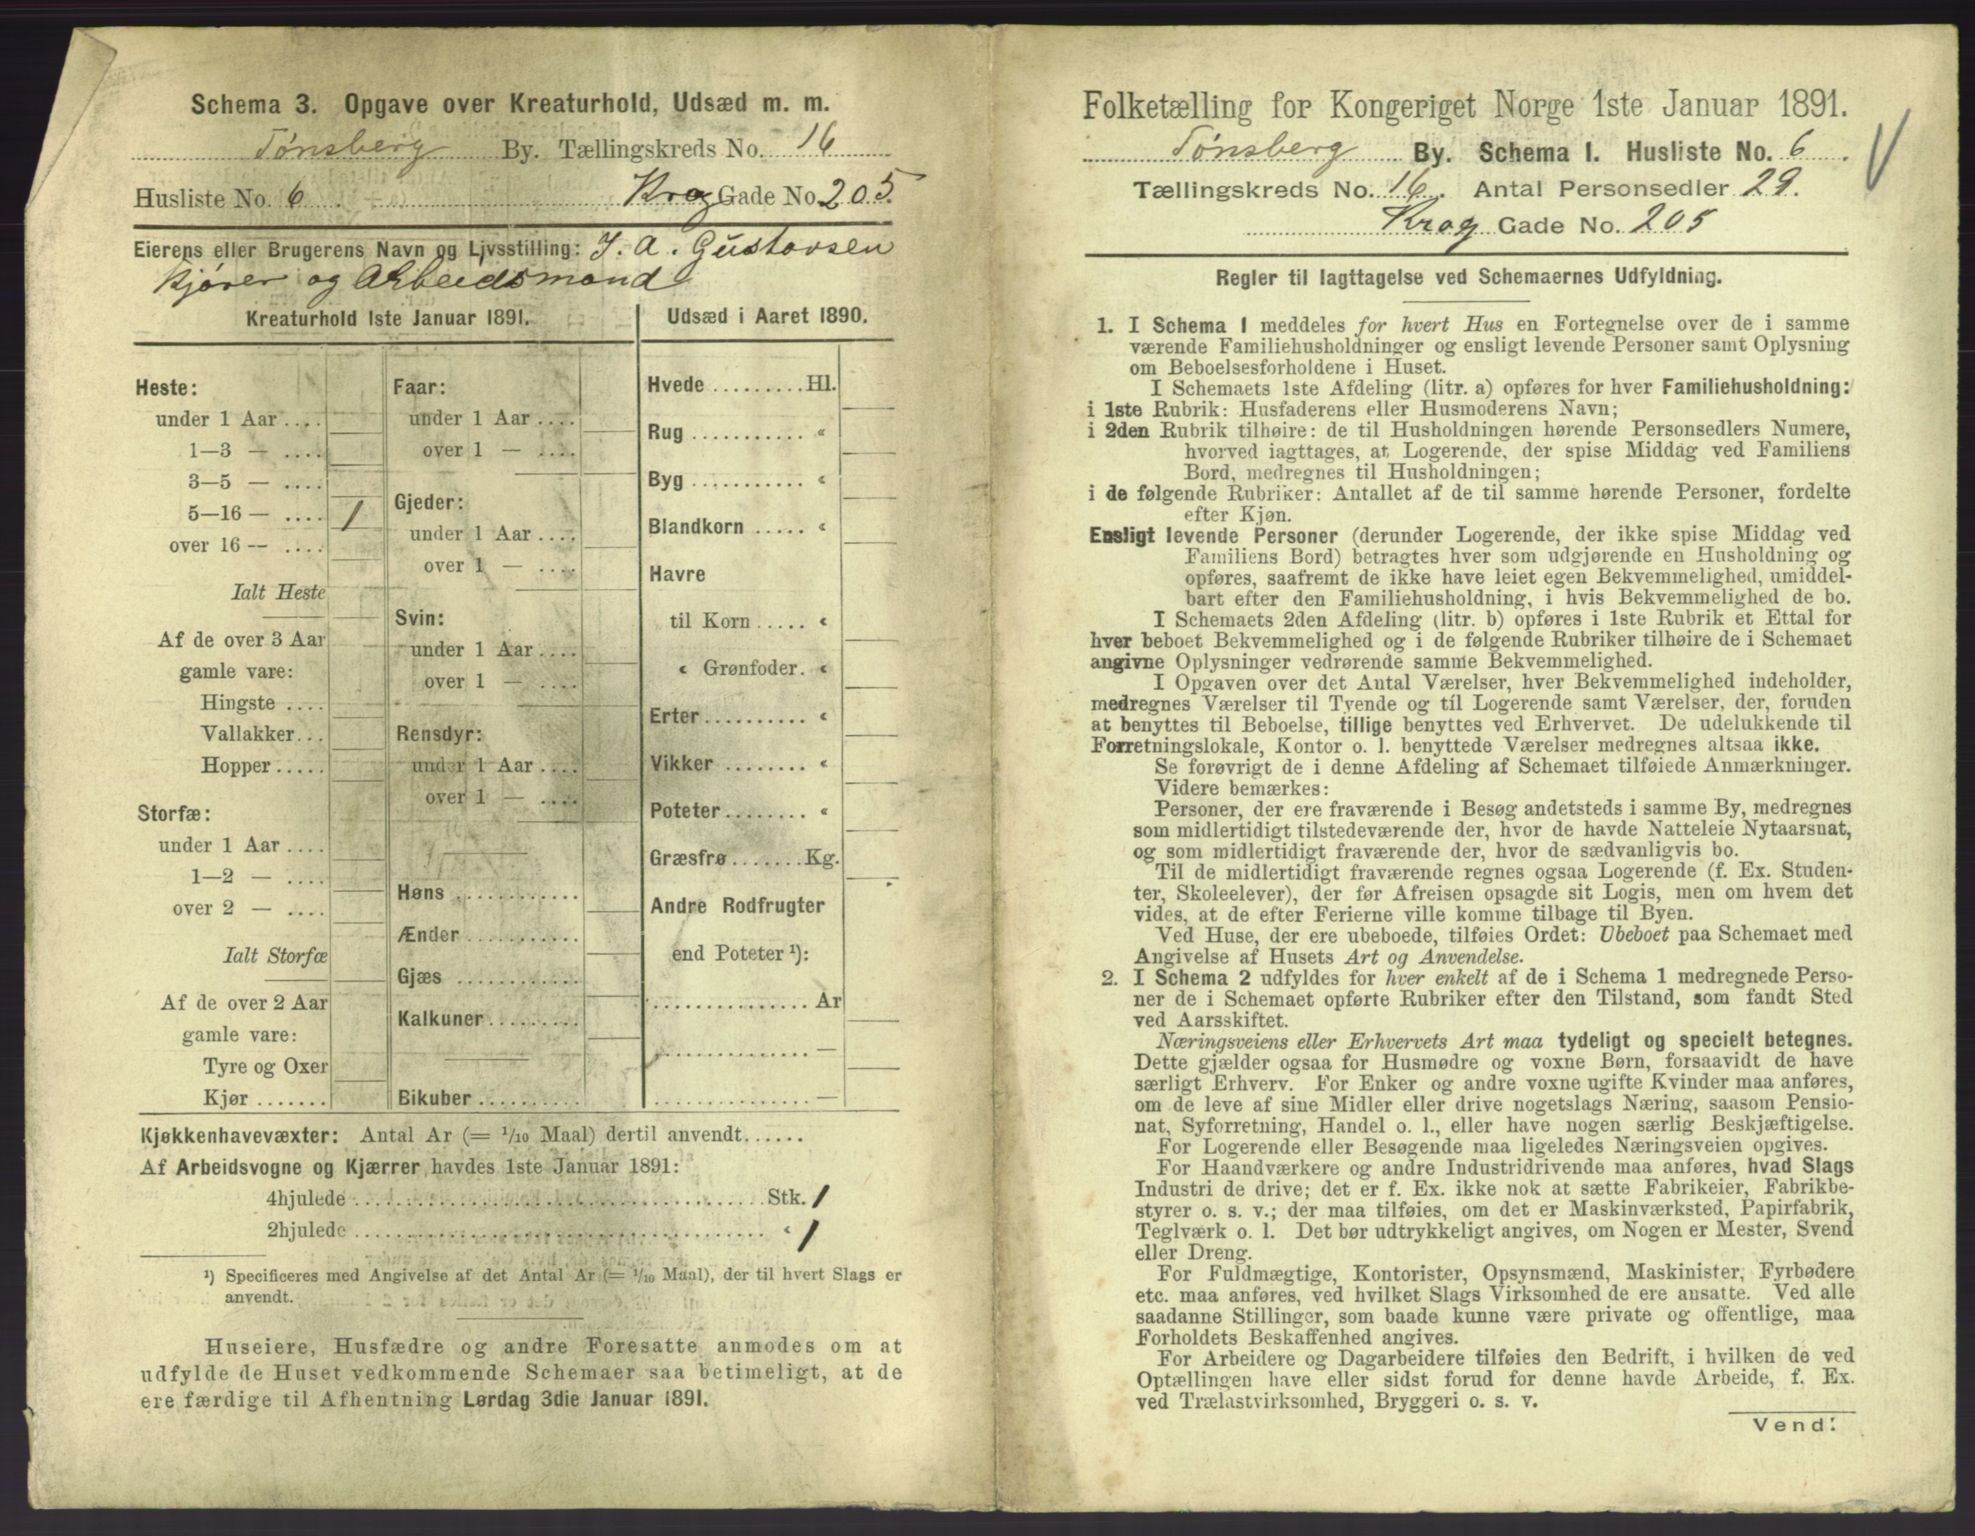 Schema 3. Opgave over Kreaturhold, Udsæd m. m.
Tønsberg By. Tællingskreds No. 16
Husliste No. 6 . Krog Gade No. 205.
Eierens eller Brugerens Navn og Livsstilling: J. A. Gustavsen
Kjører og Arbeidsmand
Kreaturhold 1ste Januar 1891.
Heste:
under 1 Aar ....
1—3 — ....
3—5 — ....
5—16 — .... 1
over 16 — ....
Ialt Heste
Af de over 3 Aar
gamle vare:
Hingste ....
Vallakker...
Hopper .....
Storfæ:
under 1 Aar ....
1—2 — ....
over 2 — ....
Ialt Storfæ
Af de over 2 Aar
gamle vare:
Tyre og Oxer
Kjør .......
Faar:
under 1 Aar ....
over 1 — ....
Gjeder:
under 1 Aar ....
over 1 — ....
Svin:
under 1 Aar ....
over 1 — ....
Rensdyr:
under 1 Aar ....
over 1 — ....
Høns ............
Ænder ...........
Gjæs ............
Kalkuner.........
Bikuber ..........
Udsæd i Aaret 1890.
Hvede .........Hl.
Rug ........... «
Byg ........... «
Blandkorn ..... «
Havre
til Korn ..... «
« Grønfoder. «
Erter.......... «
Vikker ........ «
Poteter........ «
Græsfrø.......Kg.
Andre Rodfrugter
end Poteter ¹):
............... Ar
............... —
............... —
Kjøkkenhavevæxter: Antal Ar (= 1/10 Maal) dertil anvendt......
Af Arbeidsvogne og Kjærrer havdes 1ste Januar 1891:
4hjulede ........................................ Stk. 1
2hjulede ........................................ « 1
¹) Specificeres med Angivelse af det Antal Ar (= 1/10 Maal), der til hvert Slags er
anvendt.
Huseiere, Husfædre og andre Foresatte anmodes om at
udfylde de Huset vedkommende Schemaer saa betimeligt, at de
ere færdige til Afhentning Lørdag 3die Januar 1891.
Folketælling for Kongeriget Norge 1ste Januar 1891.
Tønsberg By. Schema I. Husliste No. 6 .
Tællingskreds No. 16. Antal Personsedler 29.
Krog Gade No. 205
Regler til Iagttagelse ved Schemaernes Udfyldning.
1. I Schema 1 meddeles for hvert Hus en Fortegnelse over de i samme
værende Familiehusholdninger og ensligt levende Personer samt Oplysning
om Beboelsesforholdene i Huset.
I Schemaets 1ste Afdeling (litr. a) opføres for hver Familiehusholdning:
i 1ste Rubrik: Husfaderens eller Husmoderens Navn;
i 2den Rubrik tilhøire: de til Husholdningen hørende Personsedlers Numere,
hvorved iagttages, at Logerende, der spise Middag ved Familiens
Bord, medregnes til Husholdningen;
i de følgende Rubriker: Antallet af de til samme hørende Personer, fordelte
efter Kjøn.
Ensligt levende Personer (derunder Logerende, der ikke spise Middag ved
Familiens Bord) betragtes hver som udgjørende en Husholdning og
opføres, saafremt de ikke have leiet egen Bekvemmelighed, umiddel-
bart efter den Familiehusholdning, i hvis Bekvemmelighed de bo.
I Schemaets 2den Afdeling (litr. b) opføres i 1ste Rubrik et Ettal for
hver beboet Bekvemmelighed og i de følgende Rubriker tilhøire de i Schemaet
angivne Oplysninger vedrørende samme Bekvemmelighed.
I Opgaven over det Antal Værelser, hver Bekvemmelighed indeholder,
medregnes Værelser til Tyende og til Logerende samt Værelser, der, foruden
at benyttes til Beboelse, tillige benyttes ved Erhvervet. De udelukkende til
Forretningslokale, Kontor o. l. benyttede Værelser medregnes altsaa ikke.
Se forøvrigt de i denne Afdeling af Schemaet tilføiede Anmærkninger.
Videre bemærkes:
Personer, der ere fraværende i Besøg andetsteds i samme By, medregnes
som midlertidigt tilstedeværende der, hvor de havde Natteleie Nytaarsnat,
og som midlertidigt fraværende der, hvor de sædvanligvis bo.
Til de midlertidigt fraværende regnes ogsaa Logerende (f. Ex. Studen-
ter, Skoleelever), der før Afreisen opsagde sit Logis, men om hvem det
vides, at de efter Ferierne ville komme tilbage til Byen.
Ved Huse, der ere ubeboede, tilføies Ordet: Ubeboet paa Schemaet med
Angivelse af Husets Art og Anvendelse.
2. I Schema 2 udfyldes for hver enkelt af de i Schema 1 medregnede Perso-
ner de i Schemaet opførte Rubriker efter den Tilstand, som fandt Sted
ved Aarsskiftet.
Næringsveiens eller Erhvervets Art maa tydeligt og specielt betegnes.
Dette gjælder ogsaa for Husmødre og voxne Børn, forsaavidt de have
særligt Erhverv. For Enker og andre voxne ugifte Kvinder maa anføres,
om de leve af sine Midler eller drive nogetslags Næring, saasom Pensio-
nat, Syforretning, Handel o. l., eller have nogen særlig Beskjæftigelse.
For Logerende eller Besøgende maa ligeledes Næringsveien opgives.
For Haandværkere og andre Industridrivende maa anføres, hvad Slags
Industri de drive; det er f. Ex. ikke nok at sætte Fabrikeier, Fabrikbe-
styrer o. s. v.; der maa tilføies, om det er Maskinværksted, Papirfabrik,
Teglværk o. l. Det bør udtrykkeligt angives, om Nogen er Mester, Svend
eller Dreng.
For Fuldmægtige, Kontorister, Opsynsmænd, Maskinister, Fyrbødere
etc. maa anføres, ved hvilket Slags Virksomhed de ere ansatte. Ved alle
saadanne Stillinger, som baade kunne være private og offentlige, maa
Forholdets Beskaffenhed angives.
For Arbeidere og Dagarbeidere tilføies den Bedrift, i hvilken de ved
Optællingen have eller sidst forud for denne havde Arbeide, f. Ex.
ved Trælastvirksomhed, Bryggeri o. s. v.
Vend!